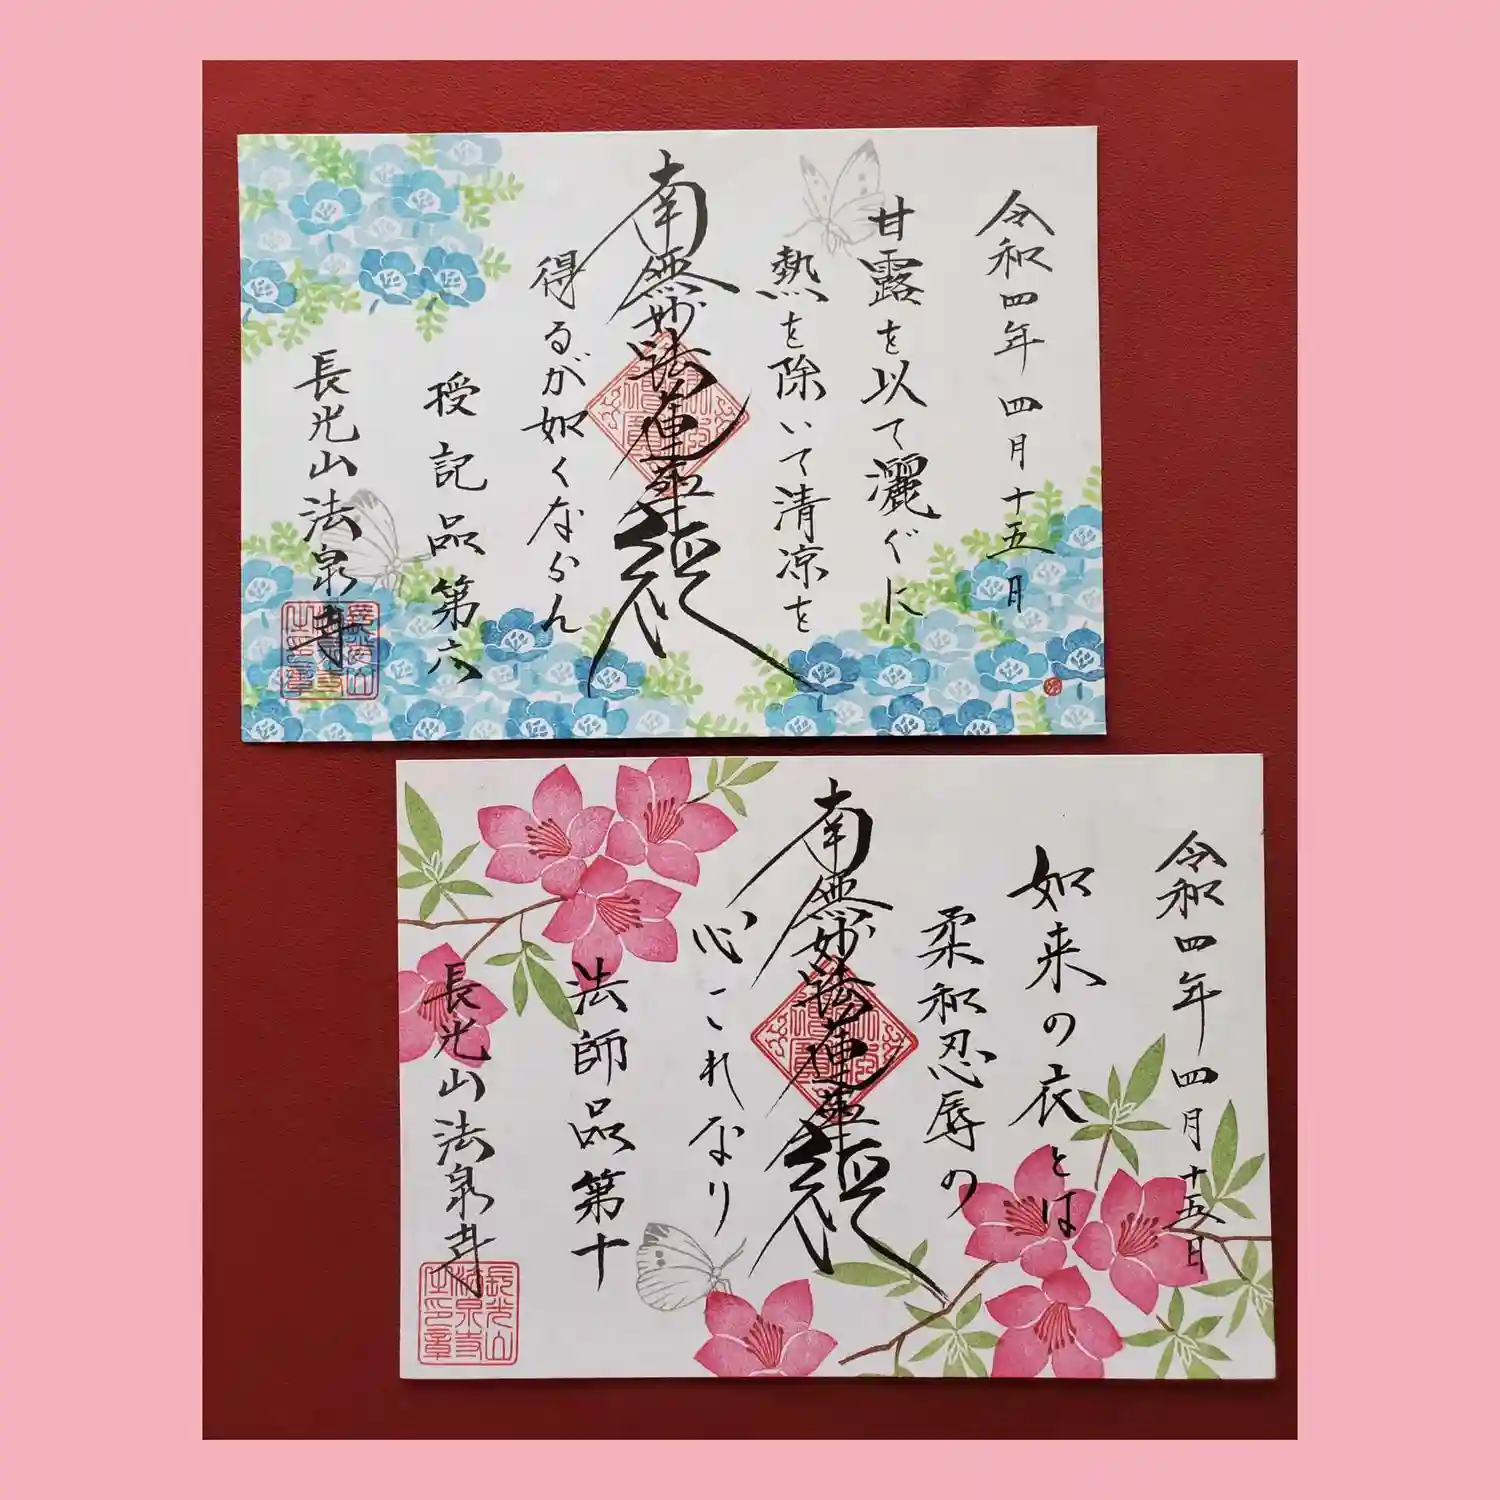 令和四年 四月 十五日
甘露を以て灑ぐに
熱を除いて清凉を
南無妙法蓮華経
得るが如くならん
授記品第六
長光山法泉寺
令和四年 四月 十五日
如来の衣とは
柔和忍辱の
南無妙法蓮華経
心これなり
法師品第十
長光山法泉寺
長光山
法泉寺
之印章